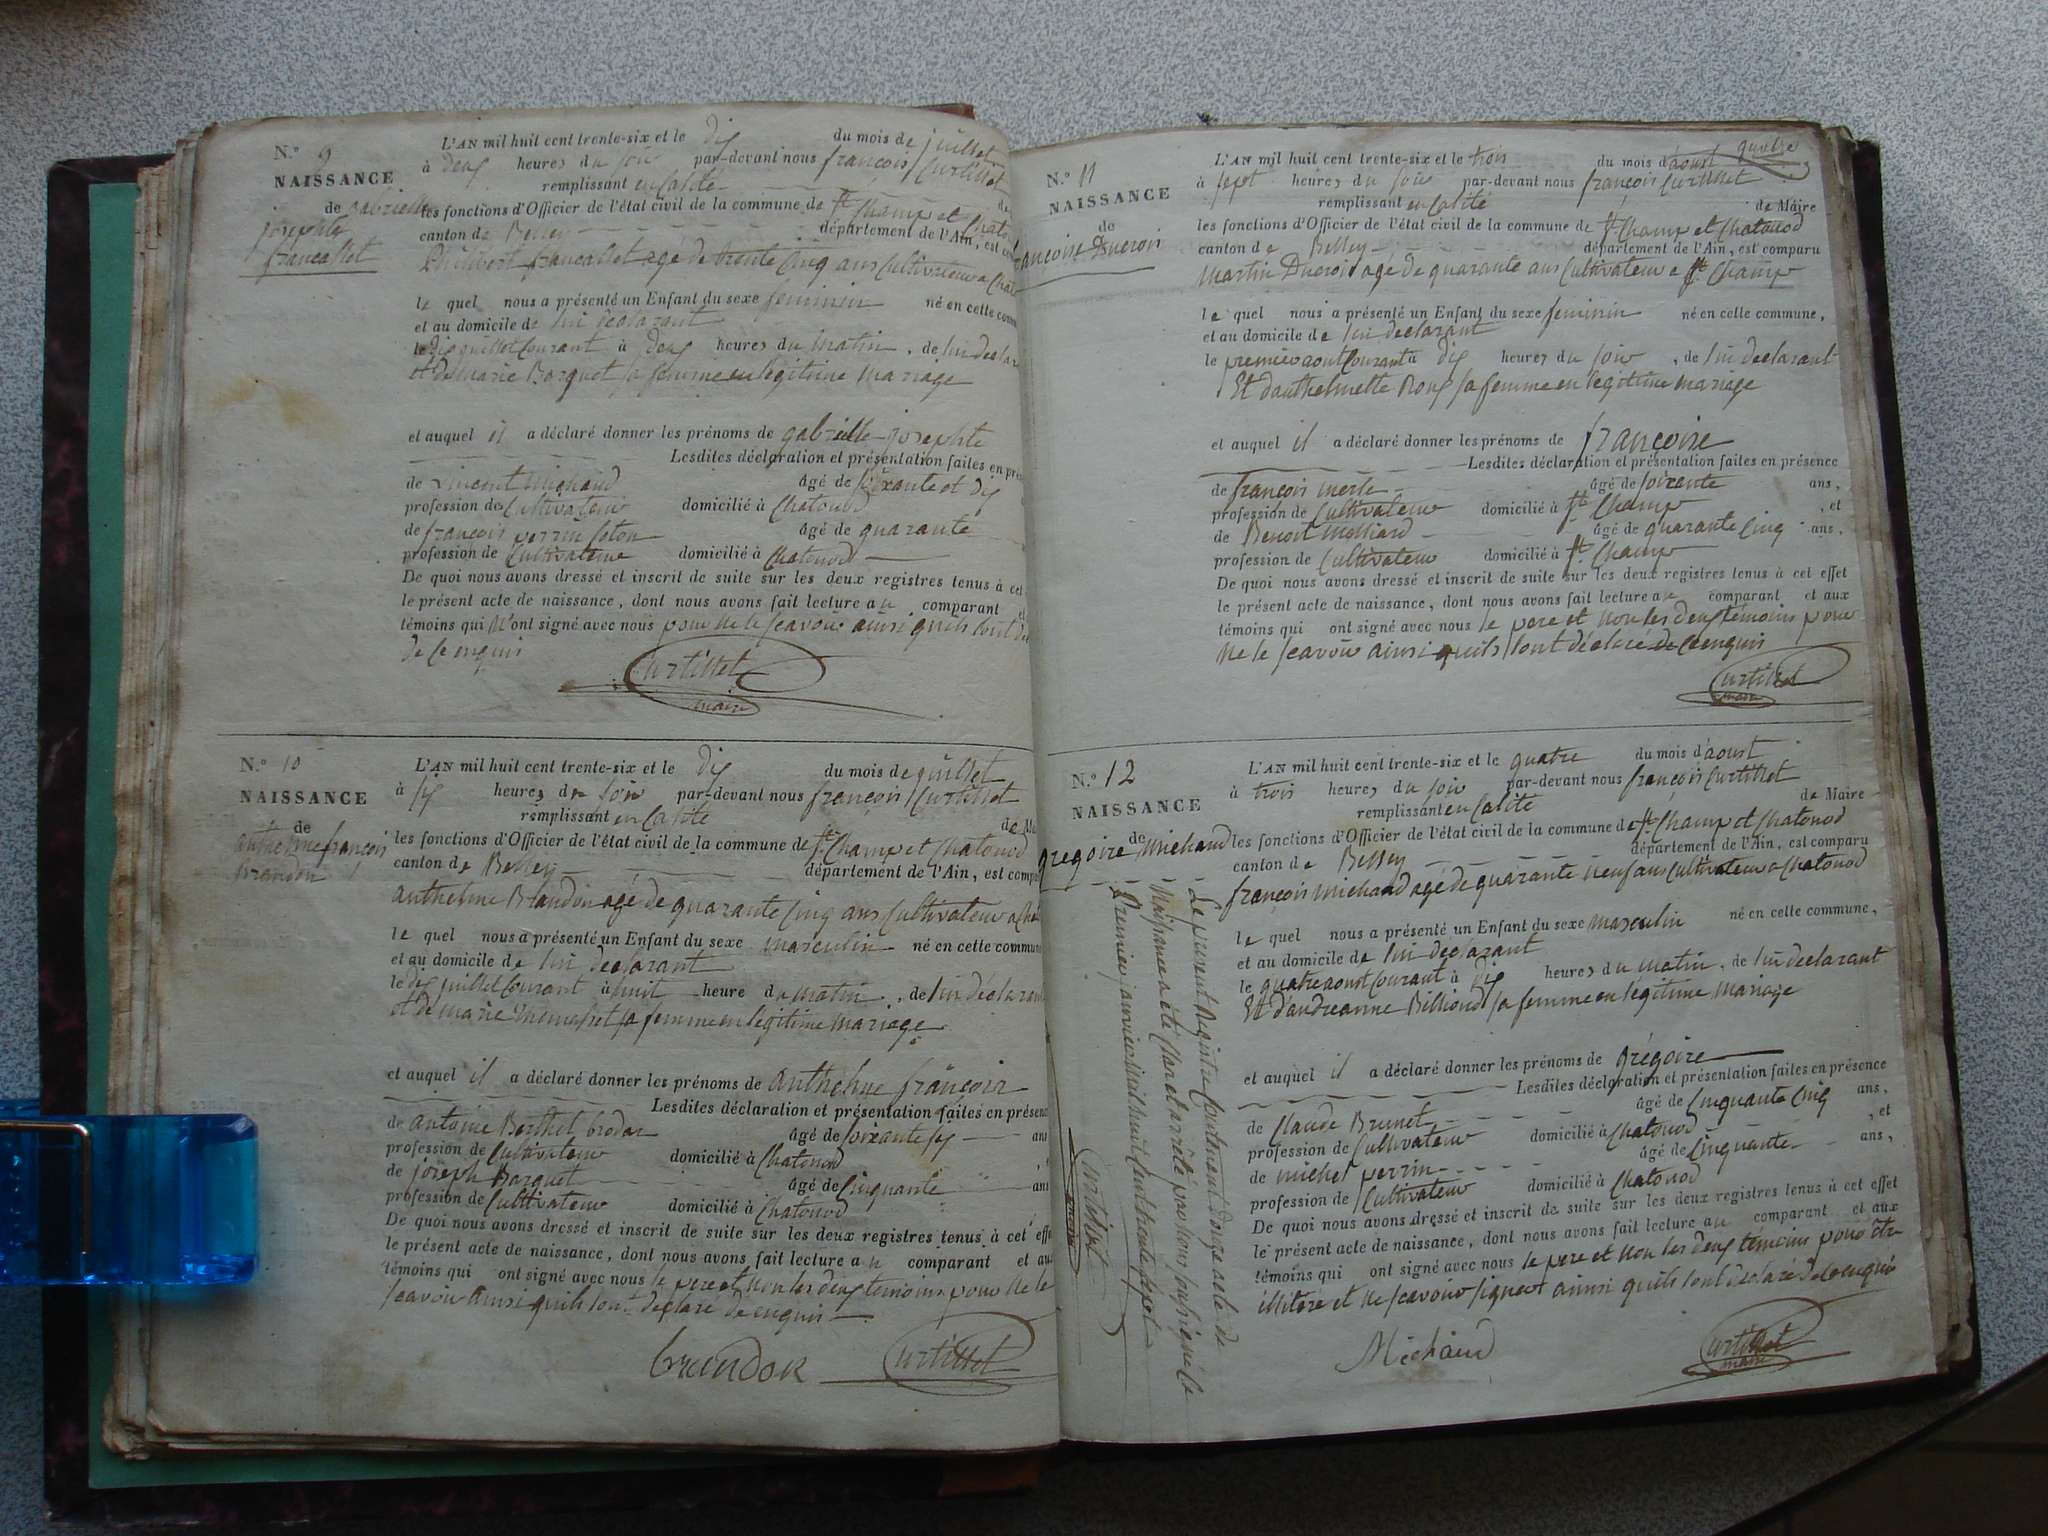 N.° 9
NAISSANCE
de gabrielle
josephte
francallet
L'AN mil huit cent trente-six et le dix du mois de juillet
à deux heures du soir par-devant nous françois Curtillet
remplissant en Calité de
les fonctions d'Officier de l'état civil de la commune de St Champ et Chatonod
canton de Belley département de l'Ain, est
francallet agé de trente Cinq ans Cultivateur a
le quel nous a présenté un Enfant du sexe feminin né en cette
et au domicile de lui declarant
le dix juillet Courant à deux heures du matin, de lui
et de marie Barquet sa femme en legitime mariage
et auquel il a déclaré donner les prénoms de gabrielle josephte
Lesdites déclaration et présentation faites en
de Vincent Michaud âgé de soixante et dix
profession de Cultivateur domicilié à Chatonod
de françois perrin âgé de quarante
profession de Cultivateur domicilié à Chatonod
De quoi nous avons dressé et inscrit de suite sur les deux registres tenus à cet
le présent acte de naissance, dont nous avons fait lecture au comparant et
témoins qui n'ont signé avec nous pour ne le scavoir ainsi quils lont
de ce enquis
Curtillet
maire
N.° 10
NAISSANCE
de
anthelme françois
brandon
L'AN mil huit cent trente-six et le dix du mois de juillet
à six heures du soir par-devant nous françois Curtillet
remplissant en Calité de
les fonctions d'Officier de l'état civil de la commune de St Champ et Chatonod
canton de Belley département de l'Ain, est
anthelme Brandon agé de quarante Cinq ans Cultivateur a
le quel nous a présenté un Enfant du sexe masculin né en cette commune
et au domicile de lui declarant
le dix juillet Courant à huit heure du matin, de lui déclarant
et de marie sa femme en legitime mariage
et auquel il a déclaré donner les prénoms de anthelme françois
Lesdites déclaration et présentation faites en présence
de antoine Berthet âgé de soixante six ans
profession de Cultivateur domicilié à Chatonod
de joseph Barquet âgé de Cinquante ans
profession de Cultivateur domicilié à Chatonod
De quoi nous avons dressé et inscrit de suite sur les deux registres tenus à cet
le présent acte de naissance, dont nous avons fait lecture au comparant et
témoins qui ont signé avec nous le pere et non les deux temoins pour ne le
scavoir ainsi quils lont declaré de enquis
brandon Curtillet
N.° 11
NAISSANCE
de
Ducroix
L'AN mil huit cent trente-six et le trois du mois d'aoust quatre
à sept heures du soir par-devant nous françois Curtillet
remplissant en Calité de Maire
les fonctions d'Officier de l'état civil de la commune de St Champ et Chatonod
canton de Belley département de l'Ain, est comparu
Martin Ducroix agé de quarante ans Cultivateur a St Champ
le quel nous a présenté un Enfant du sexe feminin né en cette commune,
et au domicile de lui declarant
le premier aout Courant à dix heures du soir, de lui declarant
Et d'anthelmette Roux sa femme en legitime mariage
et auquel il a déclaré donner les prénoms de françoise
Lesdites déclaration et présentation faites en présence
de françois merle âgé de soixante ans,
profession de Cultivateur domicilié à St Champ, et
de Benoit âgé de quarante Cinq ans,
profession de Cultivateur domicilié à St Champ
De quoi nous avons dressé et inscrit de suite sur les deux registres tenus à cet effet
le présent acte de naissance, dont nous avons fait lecture au comparant et aux
témoins qui ont signé avec nous le pere et non les deux témoins pour
ne le scavoir ainsi quils lont déclaré de ce enquis
Curtillet
maire
N.° 12
NAISSANCE
de
gregoire Michaud
Le present Registre Contenant douze acte de
Naissance a été Clos et arrêté par nous soussigné le
premier janvier mil huit Cent trente sept
Curtillet
maire
L'AN mil huit cent trente-six et le quatre du mois d'aoust
à trois heures du soir par-devant nous françois Curtillet
remplissant en Calité de Maire
les fonctions d'Officier de l'état civil de la commune de St Champ et Chatonod
canton de Belley département de l'Ain, est comparu
françois Michaud agé de quarante neuf ans Cultivateur a Chatonod
le quel nous a présenté un Enfant du sexe masculin né en cette commune,
et au domicile de lui declarant
le quatre aoust Courant à dix heures du matin, de lui declarant
Et d'andreanne Billiond sa femme en legitime mariage
et auquel il a déclaré donner les prénoms de grégoire
Lesdites déclaration et présentation faites en présence
de Claude Brunet âgé de Cinquante Cinq ans,
profession de Cultivateur domicilié à Chatonod, et
de michel perrin âgé de Cinquante ans,
profession de Cultivateur domicilié à Chatonod
De quoi nous avons dressé et inscrit de suite sur les deux registres tenus à cet effet
le présent acte de naissance, dont nous avons fait lecture au comparant et aux
témoins qui ont signé avec nous le pere et non les deux témoins pour être
illitere et ne scavoir signer ainsi quils lont declaré de ce enquis
Michaud Curtillet
maire